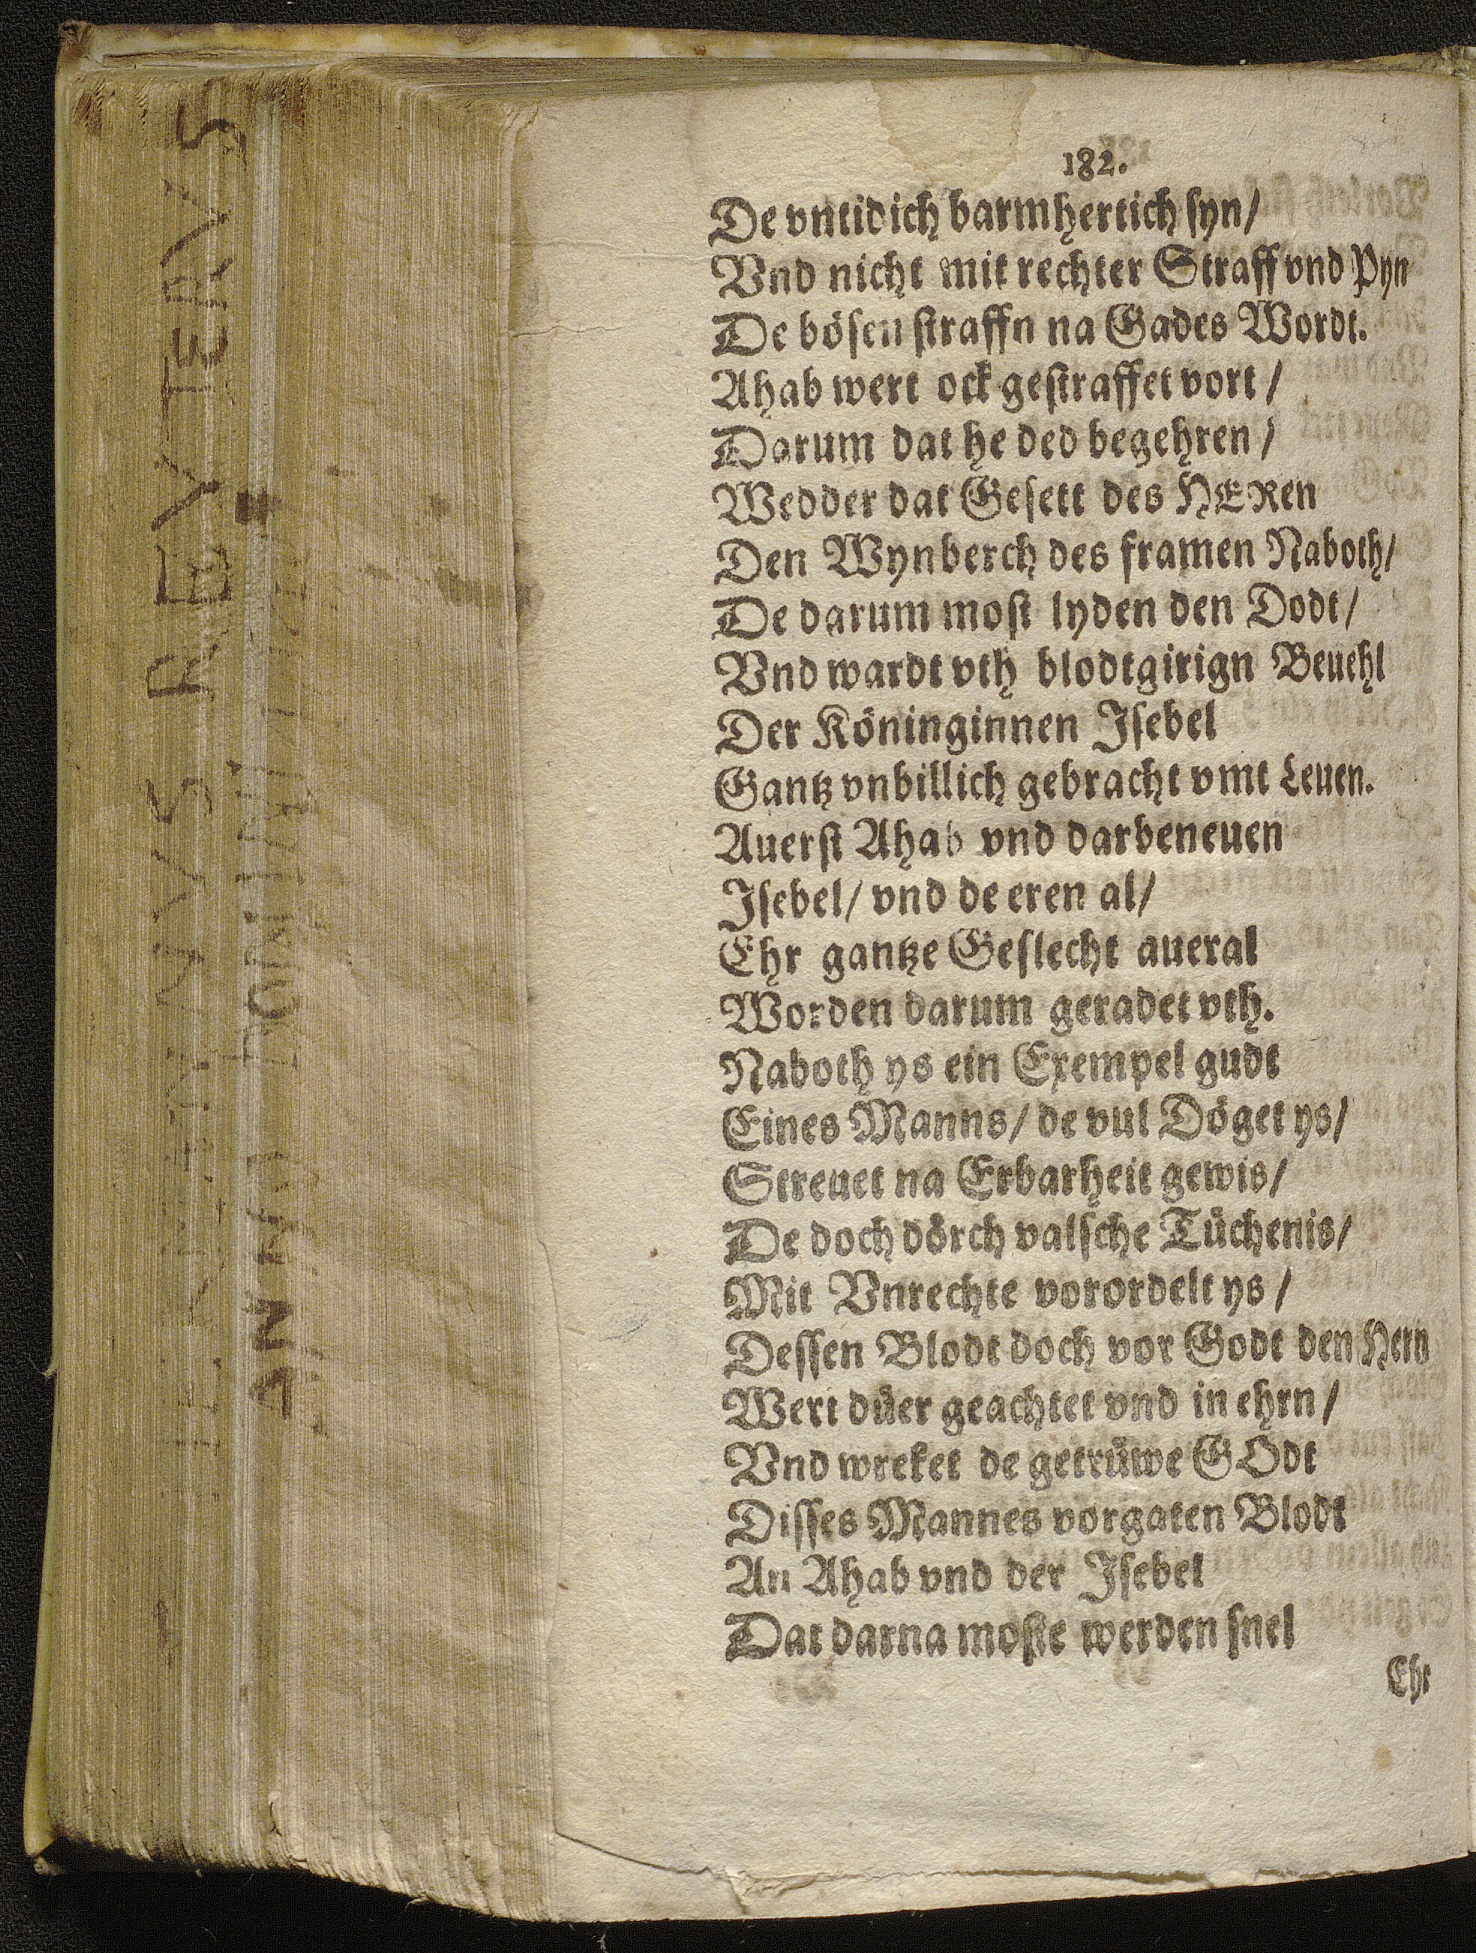 182.
De vntidich barmhertich syn/
Vnd nicht mit rechter Straff vnd Pyn
De bösen straffn na Gades Wordt.
Ahab wert ock gestraffet vort/
Darum dat he ded begehren/
Wedder dat Gesett des HERen
Den Wynberch des framen Naboth/
De darum most lyden den Dodt/
Vnd wardt vth blodtgirign Beuehl
Der Köninginnen Isebel
Gantz vnbillich gebracht vmt Leuen.
Auerst Ahab vnd darbeneuen
Isebel/ vnd de eren al/
Ehr gantze Geslecht aueral
Worden darum geradet vth.
Naboth ys ein Exempel gudt
Eines Manns/ de vul Döget ys/
Streuet na Erbarheit gewis/
De doch dörch valsche Tüchenis/
Mit Vnrechte vorordelt ys/
Dessen Blodt doch vor Godt den Hern
Wert düer geachtet vnd in ehrn/
Vnd wreket de getrüwe GOdt
Disses Mannes vorgaten Blodt
An Ahab vnd der Isebel
Dat darna moste werden snel
Ehr
REVTERVS